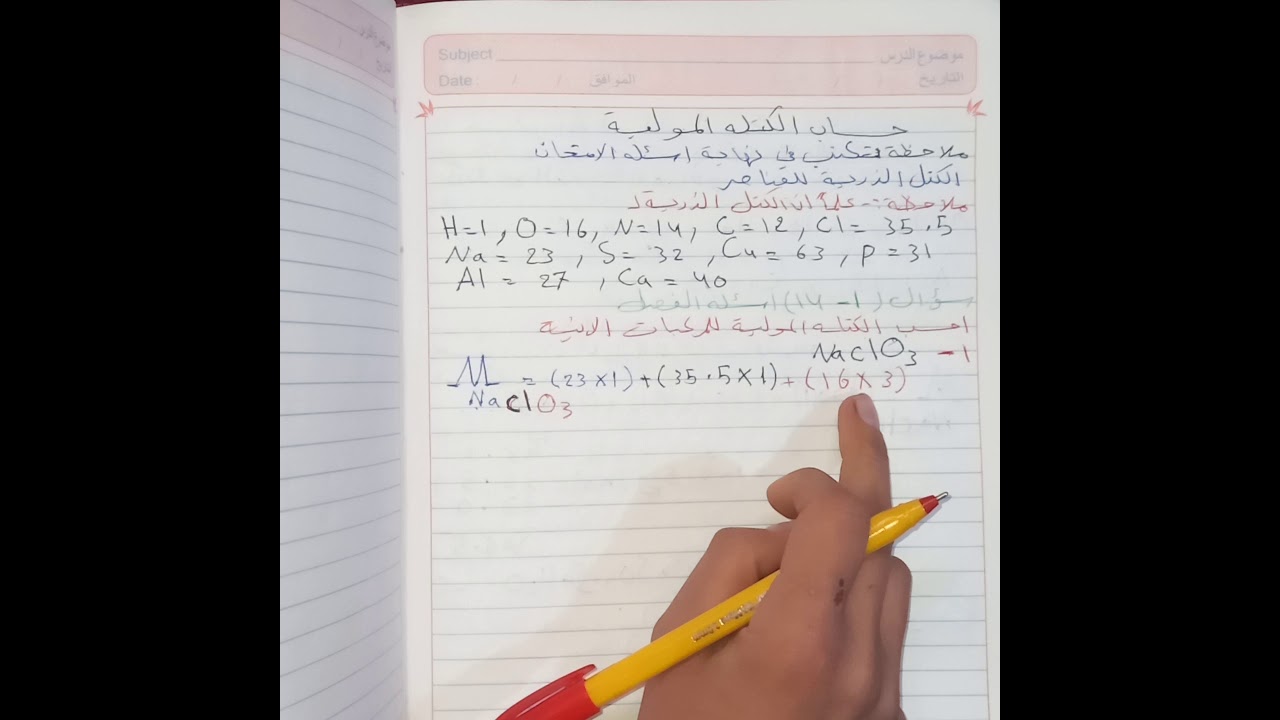 Subject موضوع الدرس
Date : / / الموافق / / التاريخ
حساب الكتله المولية
ملاحظة تكتب في نهاية اسئله الامتحان
الكتل الذرية للعناصر
ملاحظة :- علماً ان الكتل الذرية لـ
H=1 , O=16 , N=14 , C=12 , Cl= 35.5
Na= 23 , S= 32 , Cu= 63 , P=31
Al= 27 , Ca= 40
سؤال (1-14) اسئله الفصل
احسب الكتله المولية للمركبات الاتيه
1- NaClO3
M = (23×1)+(35.5×1)+(16×3)
NaClO3